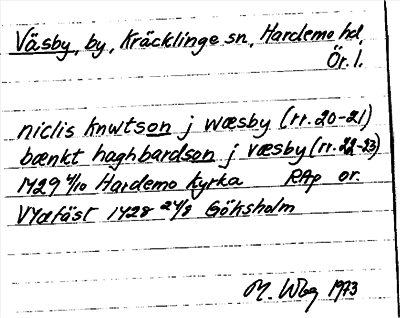 Väsby, by, Kräcklinge sn, Hardemo hd,
Ör. l.
niclis knwtson j wæsby (rr. 20-21)
bænkt haghbardson j væsby (rr. 22-23)
1429 4/10 Hardemo kyrka RAp or.
Vidfäst 1428 24/8 Göksholm
M. Wbg 1973